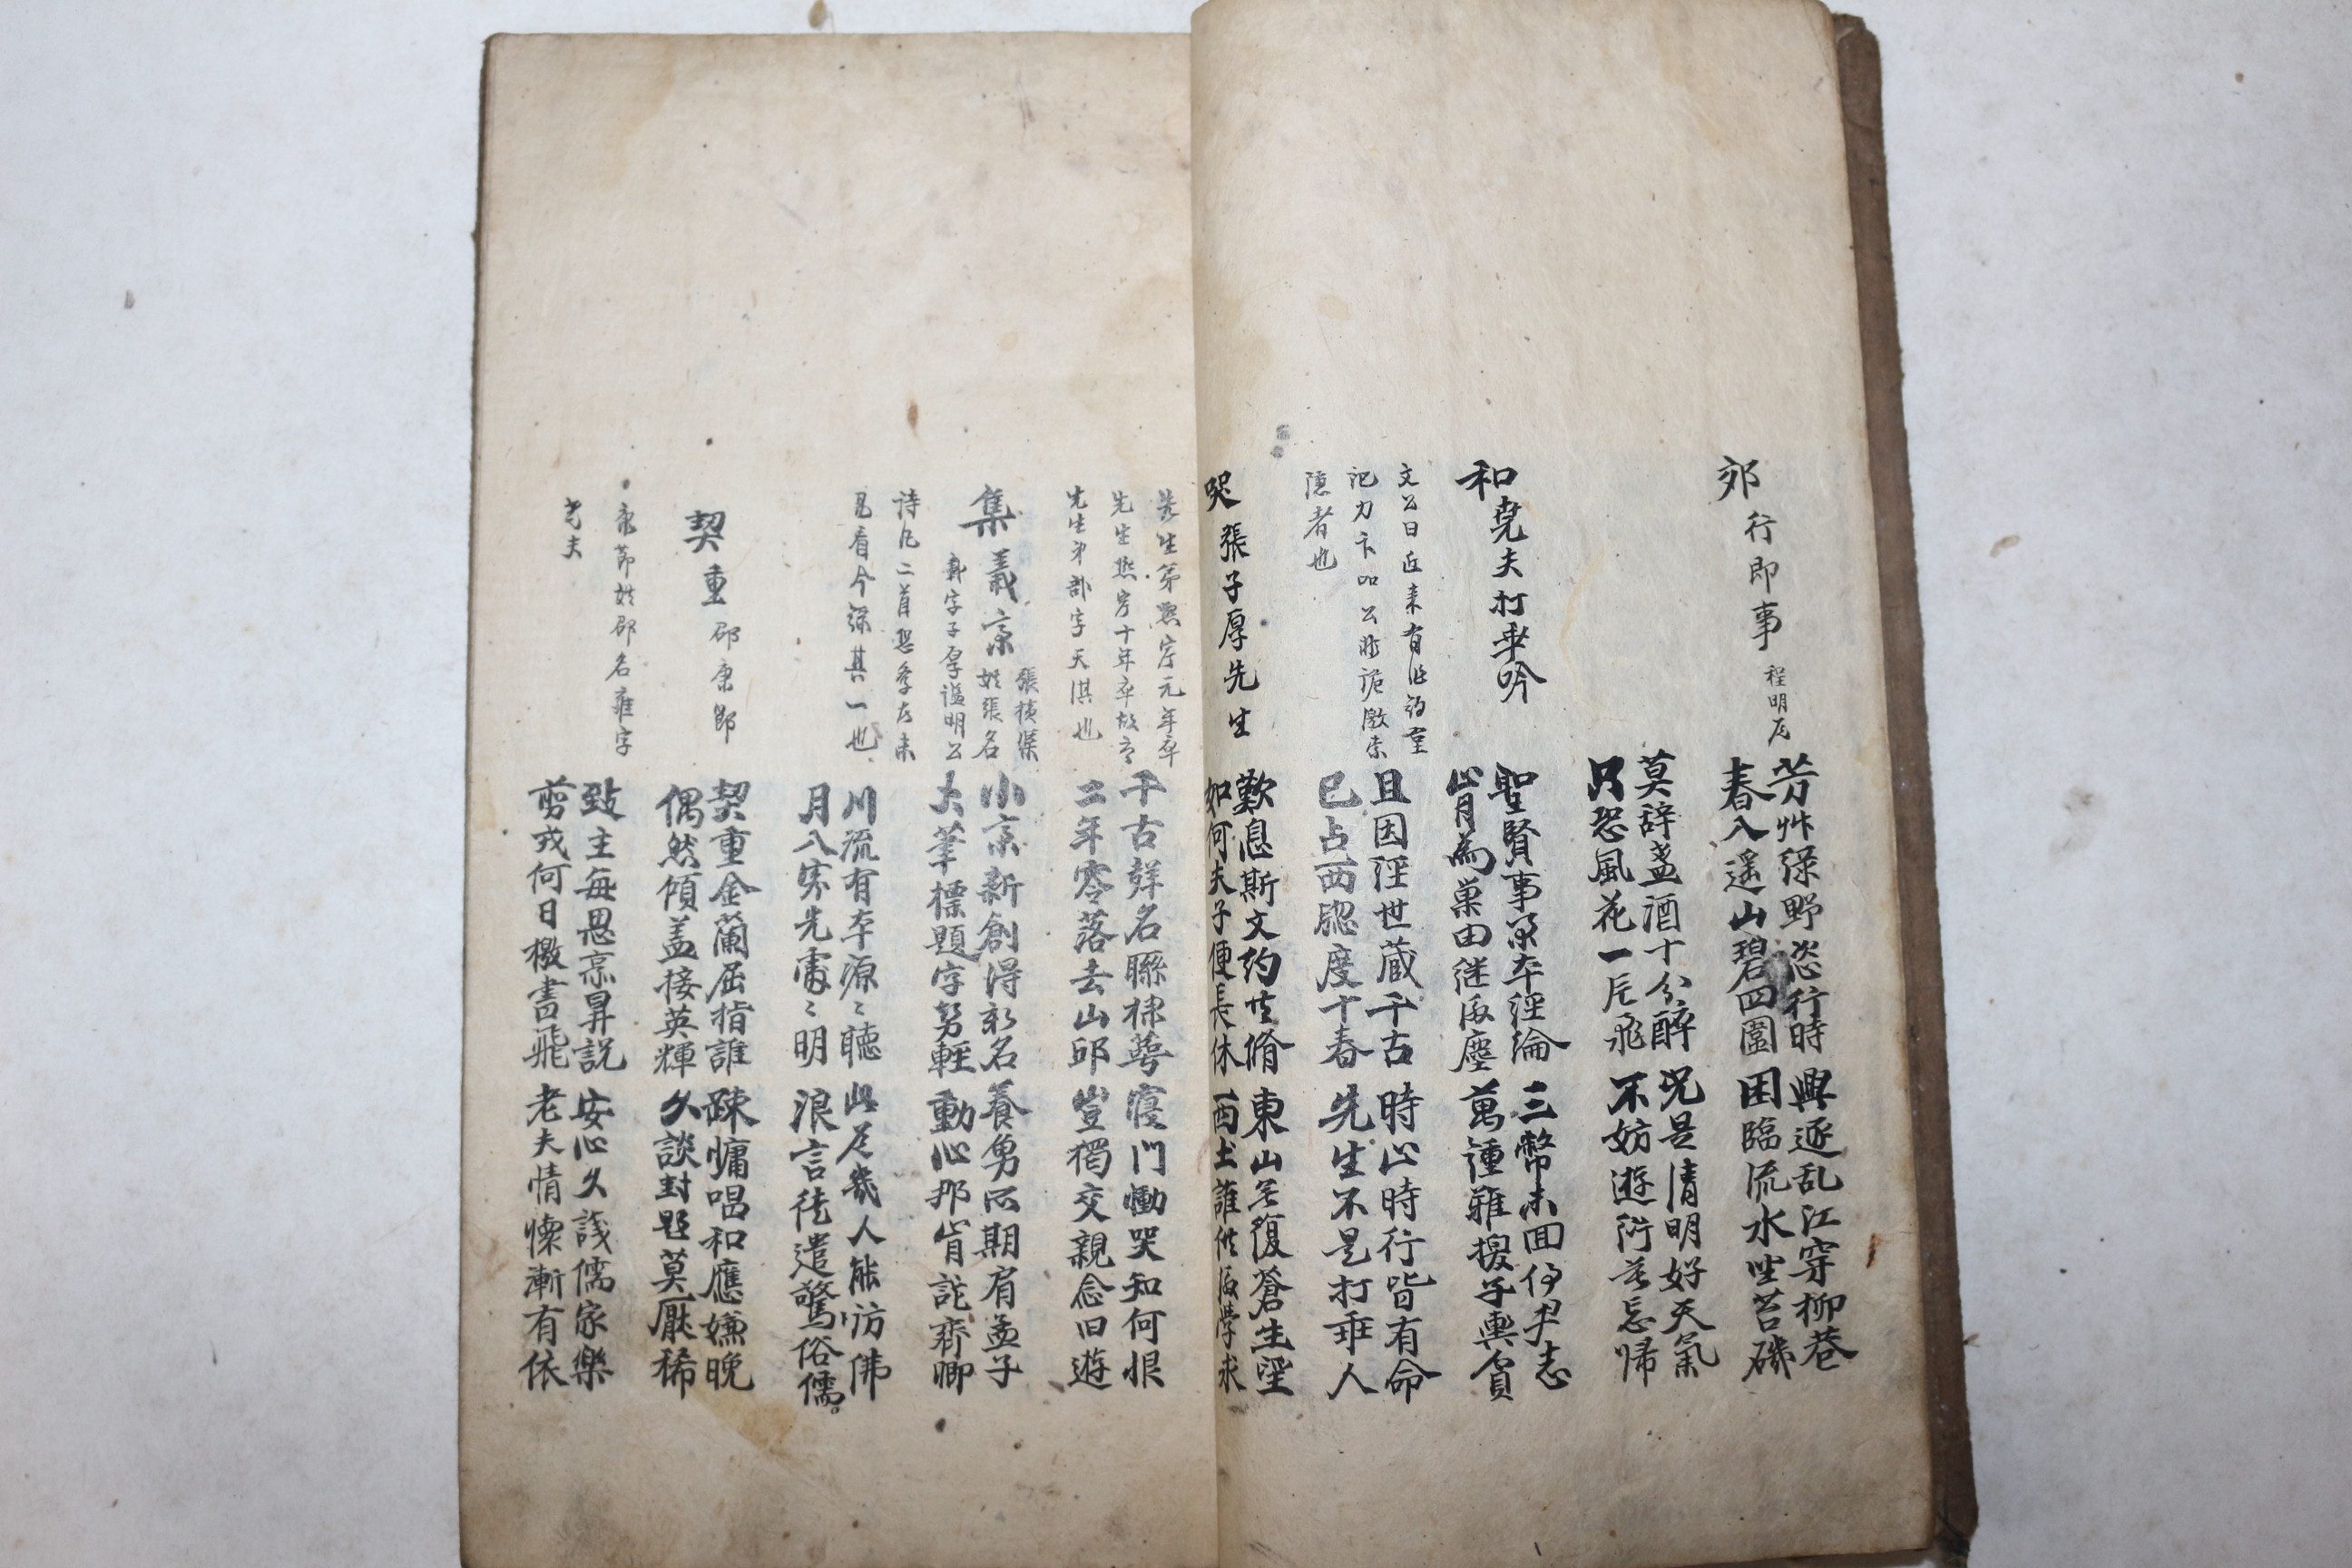 郊行即事 程明道
芳艸緑野恣行時 興逐乱江穿柳巷
春入遥山碧四圍 困臨流水坐苔磯
莫辞盞酒十分醉 况是清明好天氣
只恐風花一片飛 不妨遊衍莫忘歸
和堯夫打乖吟
聖賢事業本經綸 三幣未回伊尹志
肯為巢由継後塵 萬鍾難換子輿貧
文公曰近来有
隱者也
且因經世藏千古 時止時行皆有命
已占西牕度十春 先生不是打乖人
哭張子厚先生
歎息斯文約共脩 東山無復蒼生望
如何夫子便長休 西土誰供後學求
先生熙寧十年卒故言
先生弟戩字天淇也
千古聲名聯棣萼 寢門慟哭知何恨
二年零落去山邱 豈獨交親念旧遊
集義齋 張横渠
姓張名載字子厚謚明公
小齋新創得新名 養勇所期肩孟子
大筆標題字勢輕 動心那肯詫齊卿
詩凡二首
見看今録其一也
川流有本源〻聽 此足幾人能訪佛
月入容光處〻明 浪言徒遣驚俗儒
契重 邵康節
契重金蘭屈指誰 疎慵唱和應嫌晚
偶然傾盖接英輝 久談對莫厭稀
康節姓邵名雍字
堯夫
致主每思昇説 安心久識儒家樂
剪戎何日檄書飛 老夫情懷漸有依